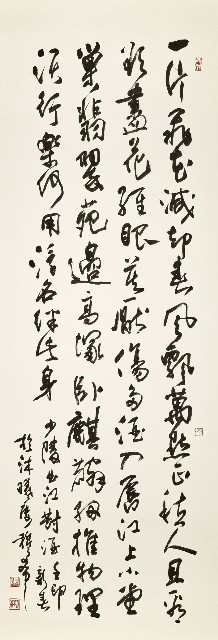 一片花飛減却春風飄萬點正愁人且看
欲盡花經眼莫厭傷多酒入脣江上小堂
巢翡翠苑邊高塚臥麒麟細推物理
須行樂何用浮名絆此身
少陵曲江對酒 卯新春